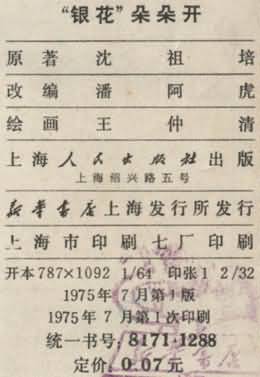 “银花”朵朵开
原著 沈祖培
改编 潘阿虎
绘画 王仲清
上海人民出版社出版
上海绍兴路五号
新华书店上海发行所发行
上海市印刷七厂印刷
开本787×1092 1/64 印张1 2/32
1975年7月第1版
1975年7月第1次印刷
统一书号: 8171·1288
定价: 0.07元